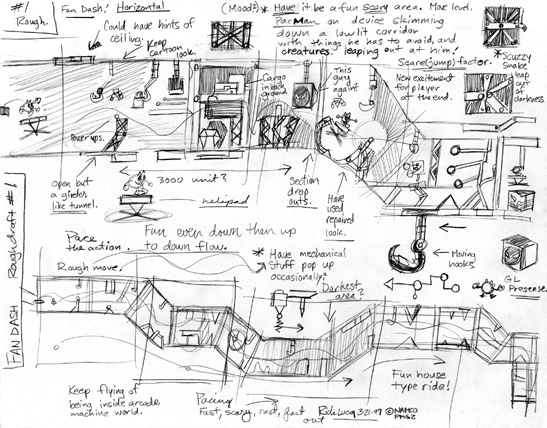 #1
Rough.
Fan Dash! Horizontal
(Mood?) * Have it be a fun scary area. Maze level.
PacMan on device skimming
down a low lit corridor
with things he has to avoid, and
creatures leaping out at him!
Could have hints of
ceiling.
Keep
cartoon
look.
Scare (jump) factor.
* Scuzzy
Snake
leap
out
of
darkness.
Cargo
in back
ground
This
guy
again?
New excitement
for player
at the end.
Power ups.
Open but
a girder
like tunnel.
3000 unit?
helipad
section
drop
outs.
Have
used
repaired
look.
Fun even down then up
to down flow.
Pace
the action.
Rough move.
* Have mechanical
stuff pop up
occasionally?
Darkest
area?
Moving
hooks
GL
Presense.
Rough draft #1
FAN DASH
Keep flying of
being inside arcade
machine world.
Pacing
Fast, scary, rest, fast
out
3-21-97 © NAMCO
Fun house
type ride!